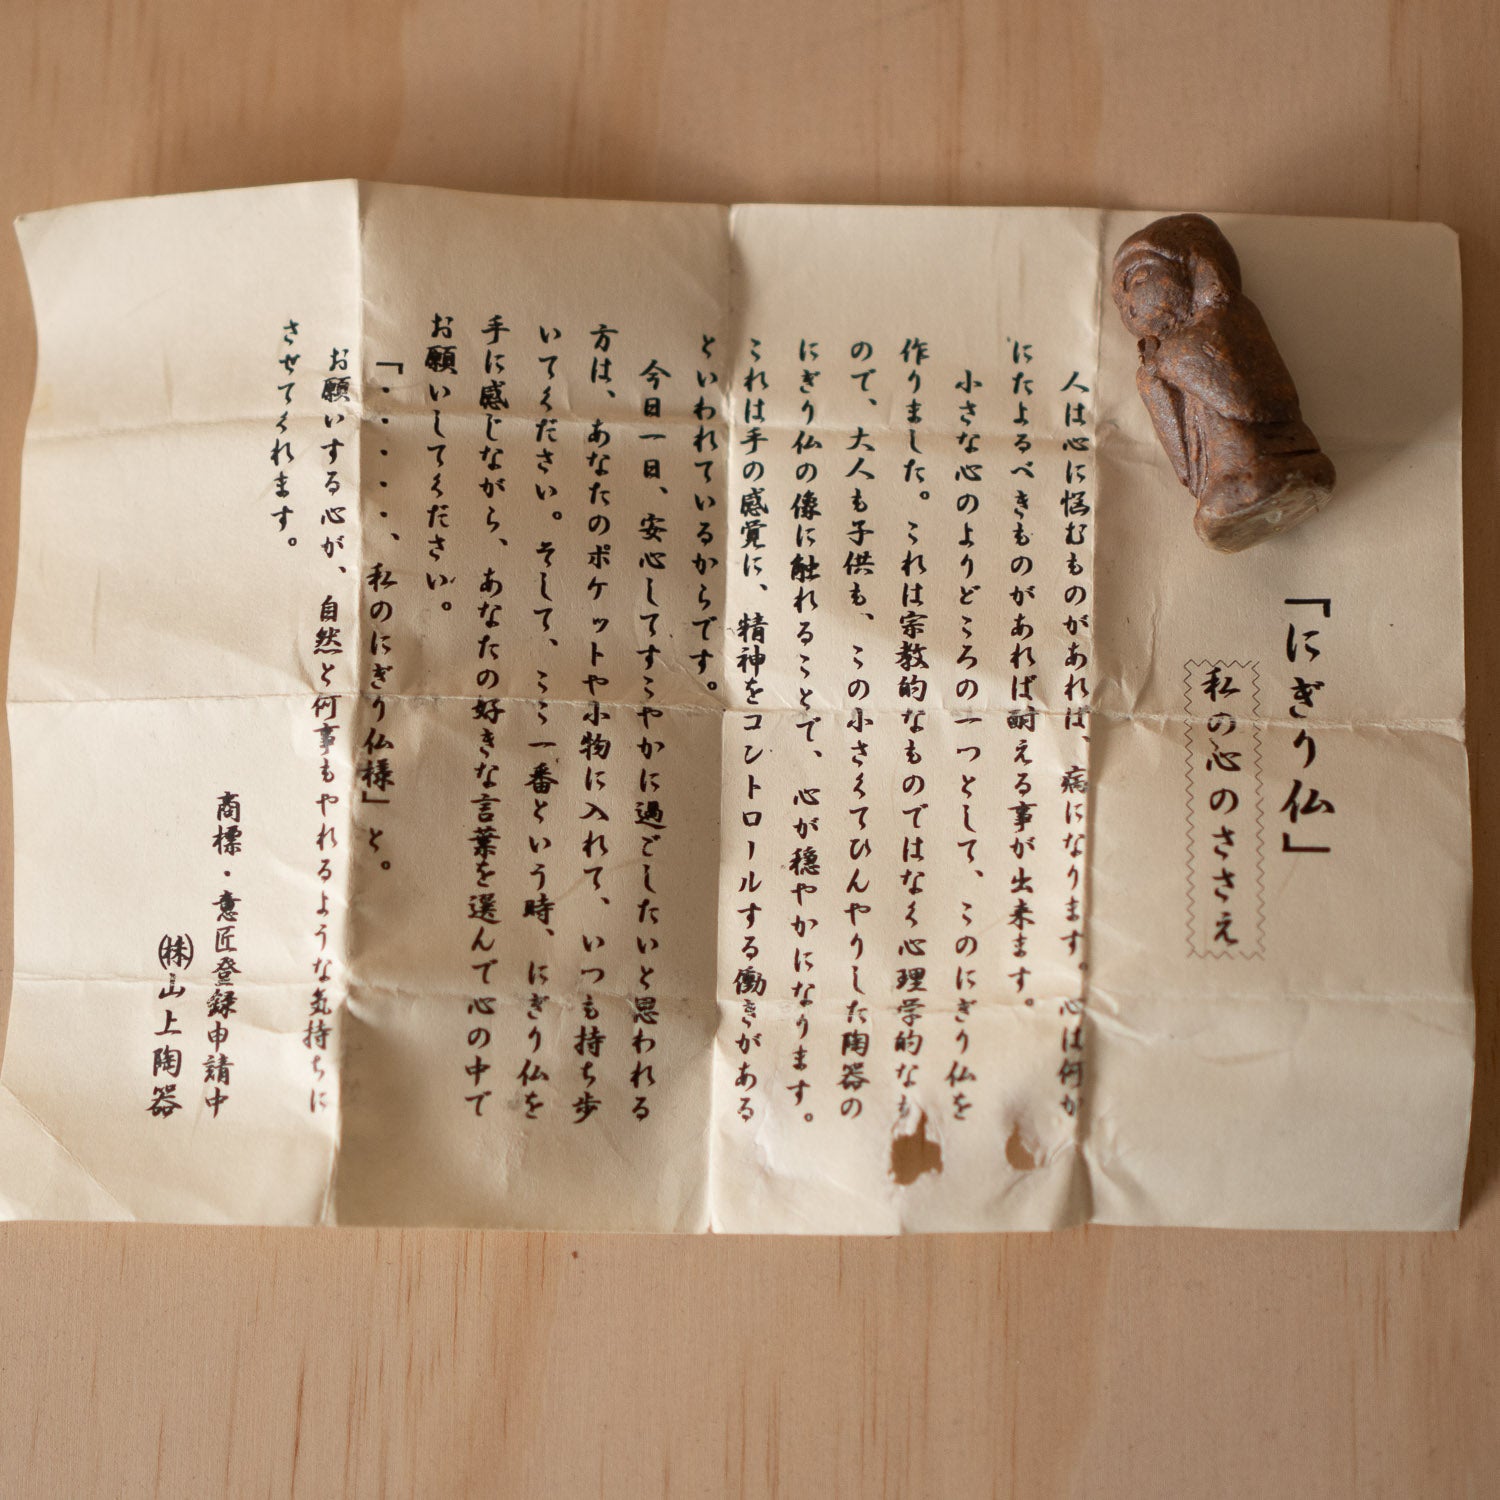 「にぎり仏」
私の心のささえ
人は心に悩むものがあれば、病になります。心は何か
にたよるべきものがあれば耐える事が出来ます。
小さな心のよりどころの一つとして、このにぎり仏を
作りました。これは宗教的なものではなく心理学的なも
ので、大人も子供も、この小さくてひんやりした陶器の
にぎり仏の像に触れることで、心が穏やかになります。
これは手の感覚に、精神をコントロールする働きがある
といわれているからです。
今日一日、安心してすこやかに過ごしたいと思われる
方は、あなたのポケットや小物に入れて、いつも持ち歩
いてください。そして、ここ一番という時、にぎり仏を
手に感じながら、あなたの好きな言葉を選んで心の中で
お願いしてください。
「・・・・・、私のにぎり仏様」と。
お願いする心が、自然と何事もやれるような気持ちに
させてくれます。
商標・意匠登録申請中
㈱山上陶器